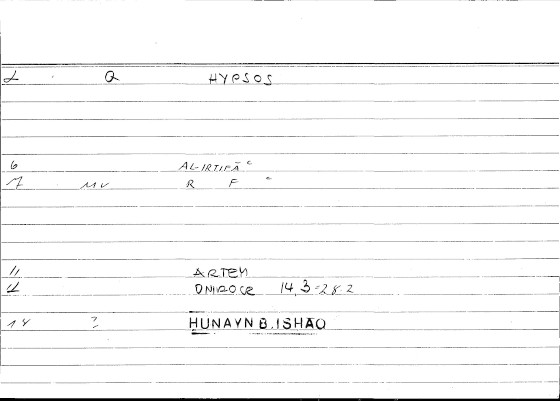 2 Q HYPSOS
6 AL-IRTIFĀʿ
7 MV R F ʿ
11 ARTEM
12 ONIROCR 14,3-28.2
14 ? HUNAYN B. ISHAQ